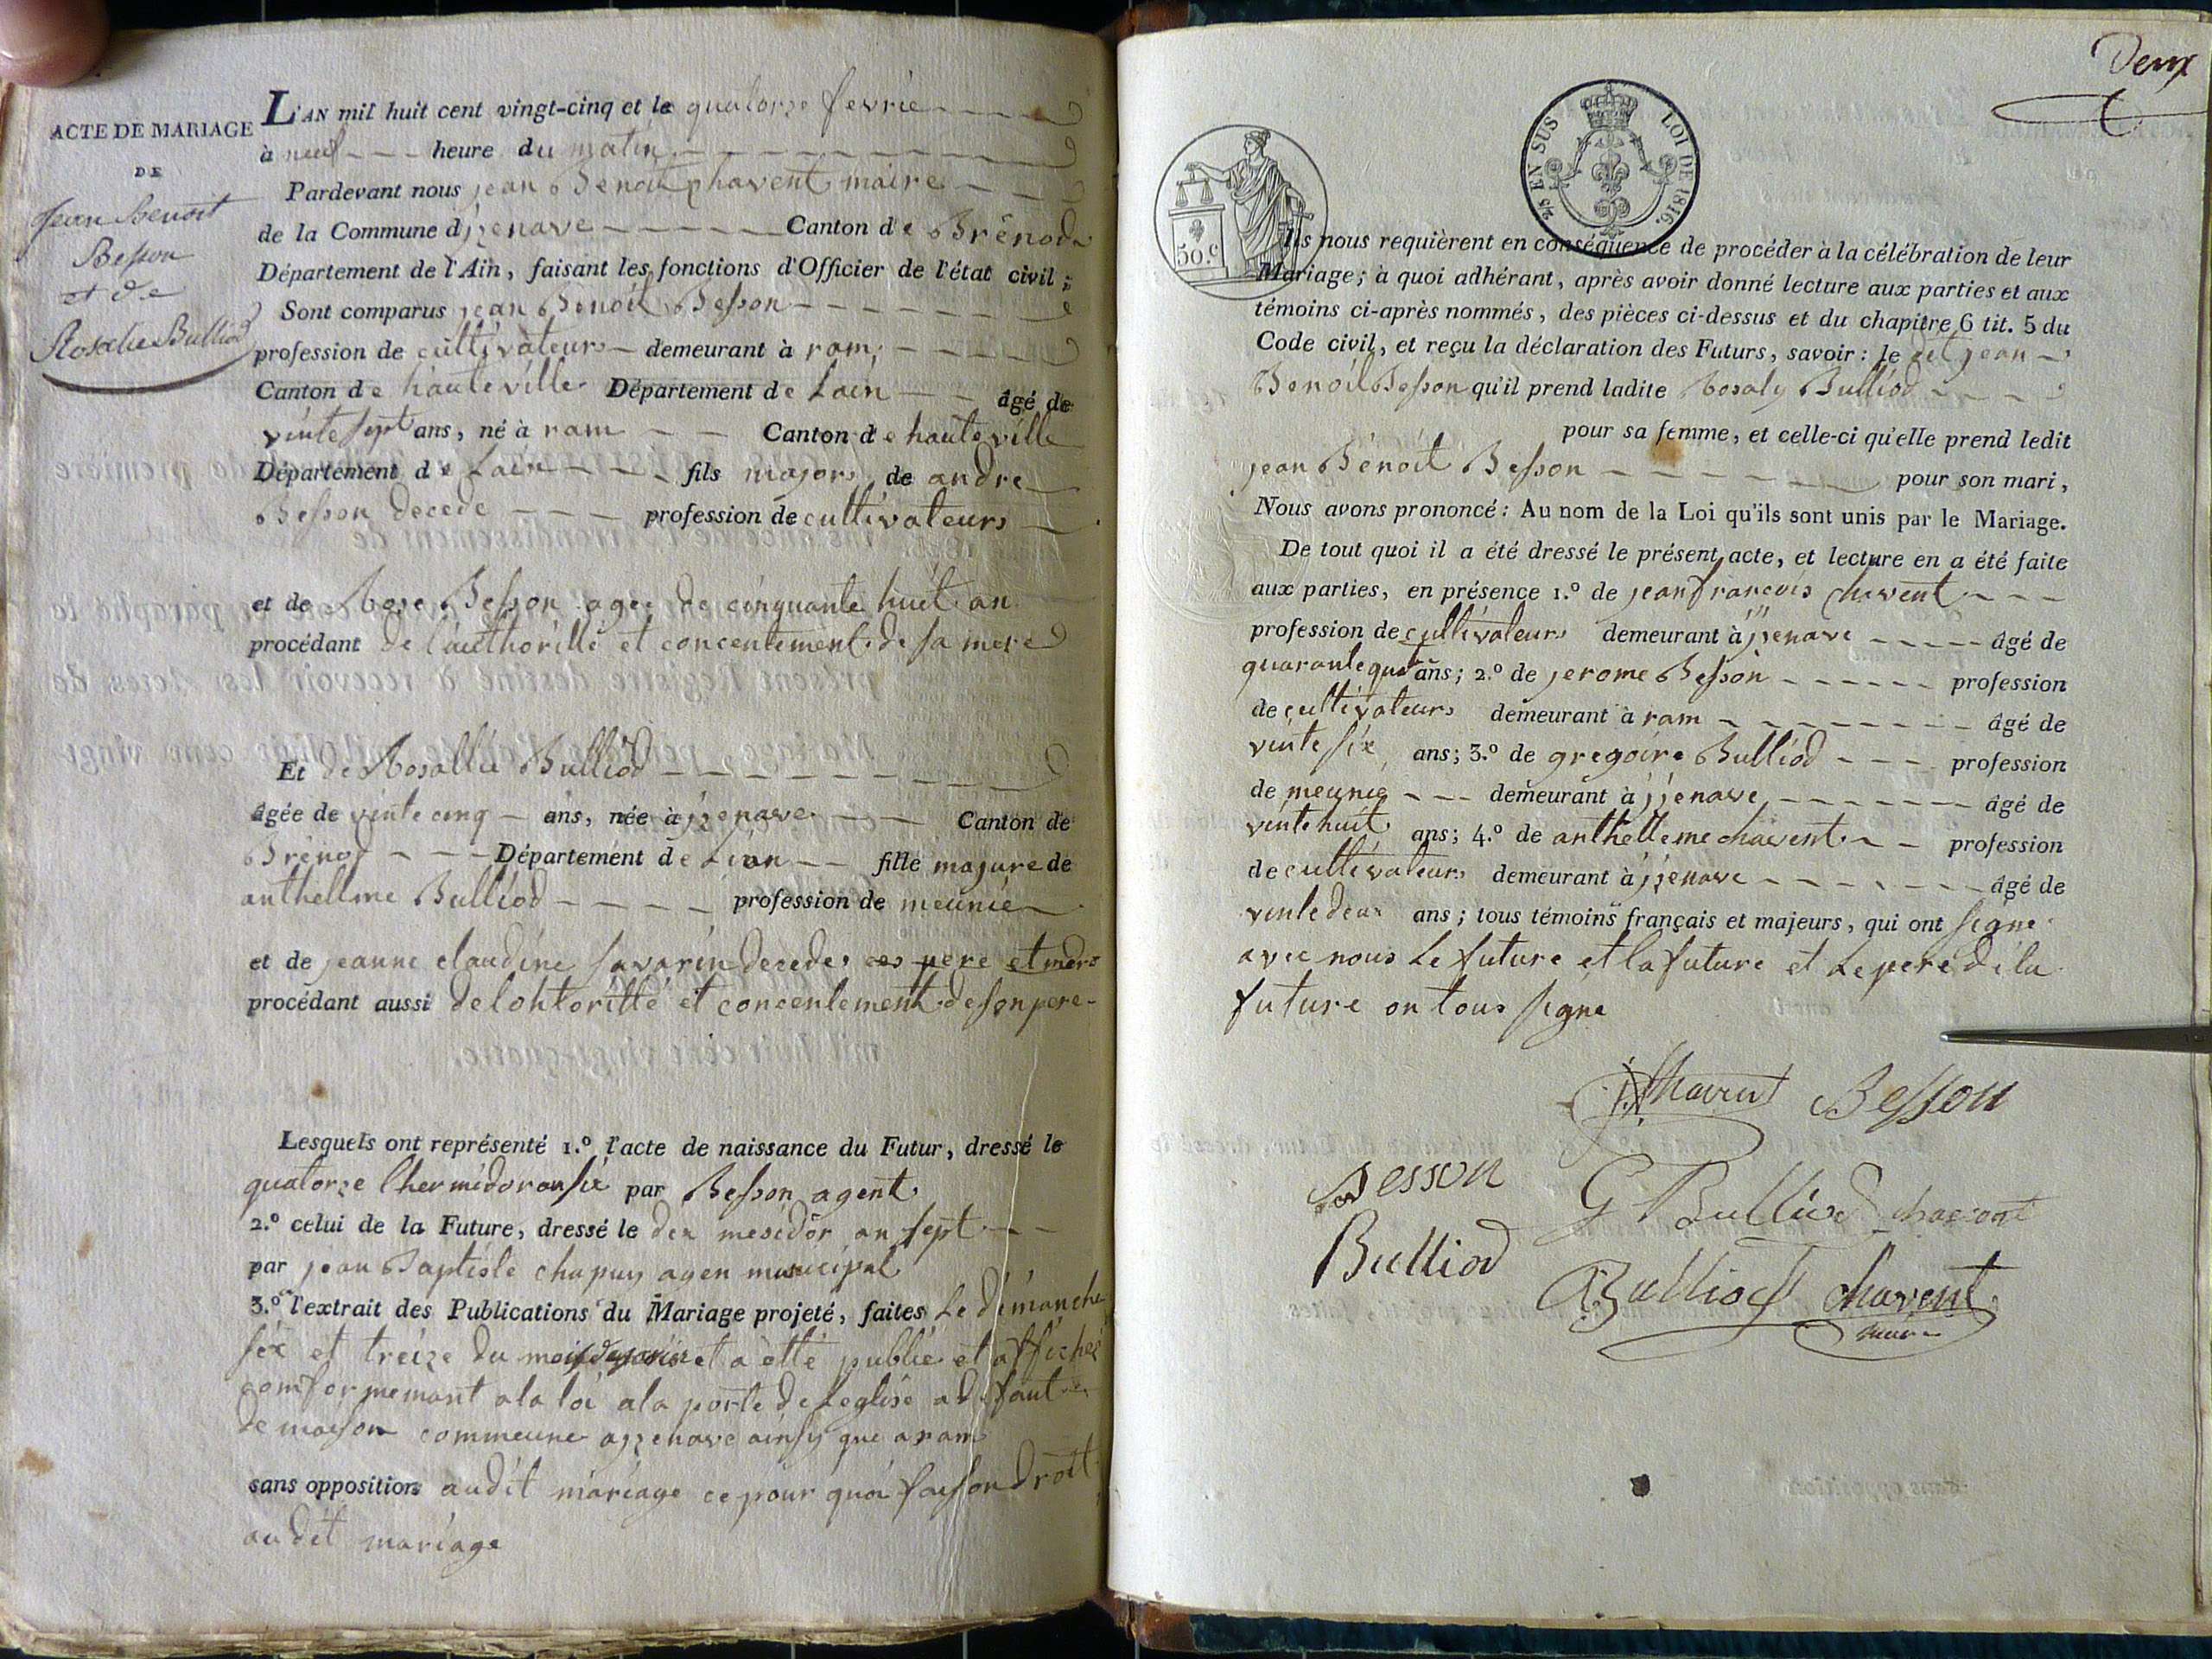 L'AN mil huit cent vingt-cinq et le quatorze fevrie
à neuf heure du matin
Pardevant nous jean Benoit chavent maire
de la Commune d'izenave Canton de Brénod
Département de l'Ain, faisant les fonctions d'Officier de l'état civil ;
Sont comparus jean Benoit Besson
profession de cultivateur demeurant à ram
Canton de hauteville Département de Lain âgé de
vinte sept ans, né à ram Canton de hauteville
Département de Lain fils major de andre
Besson decede profession de cultivateur
et de Rose Besson agee de cinquante huit an
procédant de l'authorillé et concentement de sa mere
Et de Rosallie Bulliod
âgée de vinte cinq ans, née à izenave Canton de
Brénod Département de Lian fille majure de
anthellme Bulliod profession de meunié
et de jeanne claudine savarin decede ces pere et mere
procédant aussi de lohtorillé et concentement de son pere
Lesquels ont représenté 1.º l'acte de naissance du Futur, dressé le
quatorze thermidor an six par Besson agent
2.º celui de la Future, dressé le dix mesidor an sept
par jean Baptiste chapuy agen municipal
3.º l'extrait des Publications du Mariage projeté, faites Le dimanche
six et treize du mois et a etté publié et affiché
comformemant a la loi a la porte de Leglise a defaut
de maison commeune a izenave ainsy que a ram
sans opposition audit mariage ce pour quoi faison droit
audit mariage
ACTE DE MARIAGE
DE
Jean Benoit
Besson
et de
Rosalie Bulliod
Deux
2/5 EN SUS
LOI DE 1816.
50.c
Ils nous requièrent en conséquence de procéder à la célébration de leur
Mariage ; à quoi adhérant, après avoir donné lecture aux parties et aux
témoins ci-après nommés, des pièces ci-dessus et du chapitre 6 tit. 5 du
Code civil, et reçu la déclaration des Futurs, savoir : le dit jean
Benoit Besson qu'il prend ladite Rosaly Bulliod
pour sa femme, et celle-ci qu'elle prend ledit
jean Benoit Besson pour son mari,
Nous avons prononcé : Au nom de la Loi qu'ils sont unis par le Mariage.
De tout quoi il a été dressé le présent acte, et lecture en a été faite
aux parties, en présence 1.º de jean françois chavent
profession de cultivateur demeurant à izenave âgé de
quarante quat ans ; 2.º de jerome Besson profession
de cultivateur demeurant à ram âgé de
vinte six ans ; 3.º de gregoire Bulliod profession
de meunié demeurant à izenave âgé de
vinte huit ans ; 4.º de anthelleme chavent profession
de cultivateur demeurant à izenave âgé de
vinte deux ans ; tous témoins français et majeurs, qui ont signe
avec nous Le future et la future et Le pere de la
future on tous signe
Chavent Besson
Besson G Bulliod chavent
Bulliod Bulliod chavent
maire